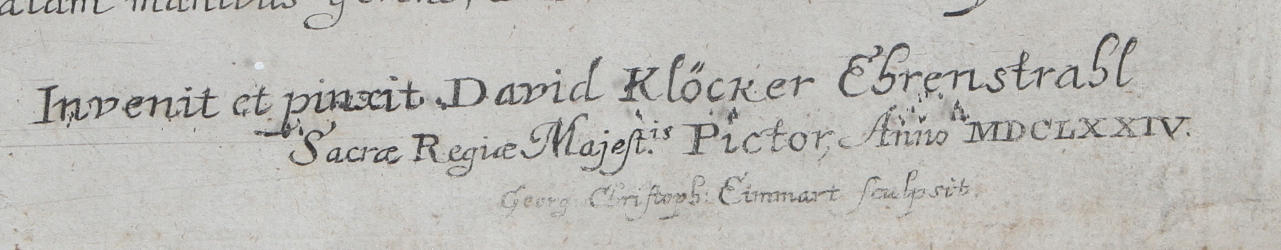 manibus
Invenit et pinxit David Klöcker Ehrenstrahl
Sacræ Regiæ Majest.is Pictor, Anno MDCLXXIV.
Georg Christoph: Eimmart sculpsit.